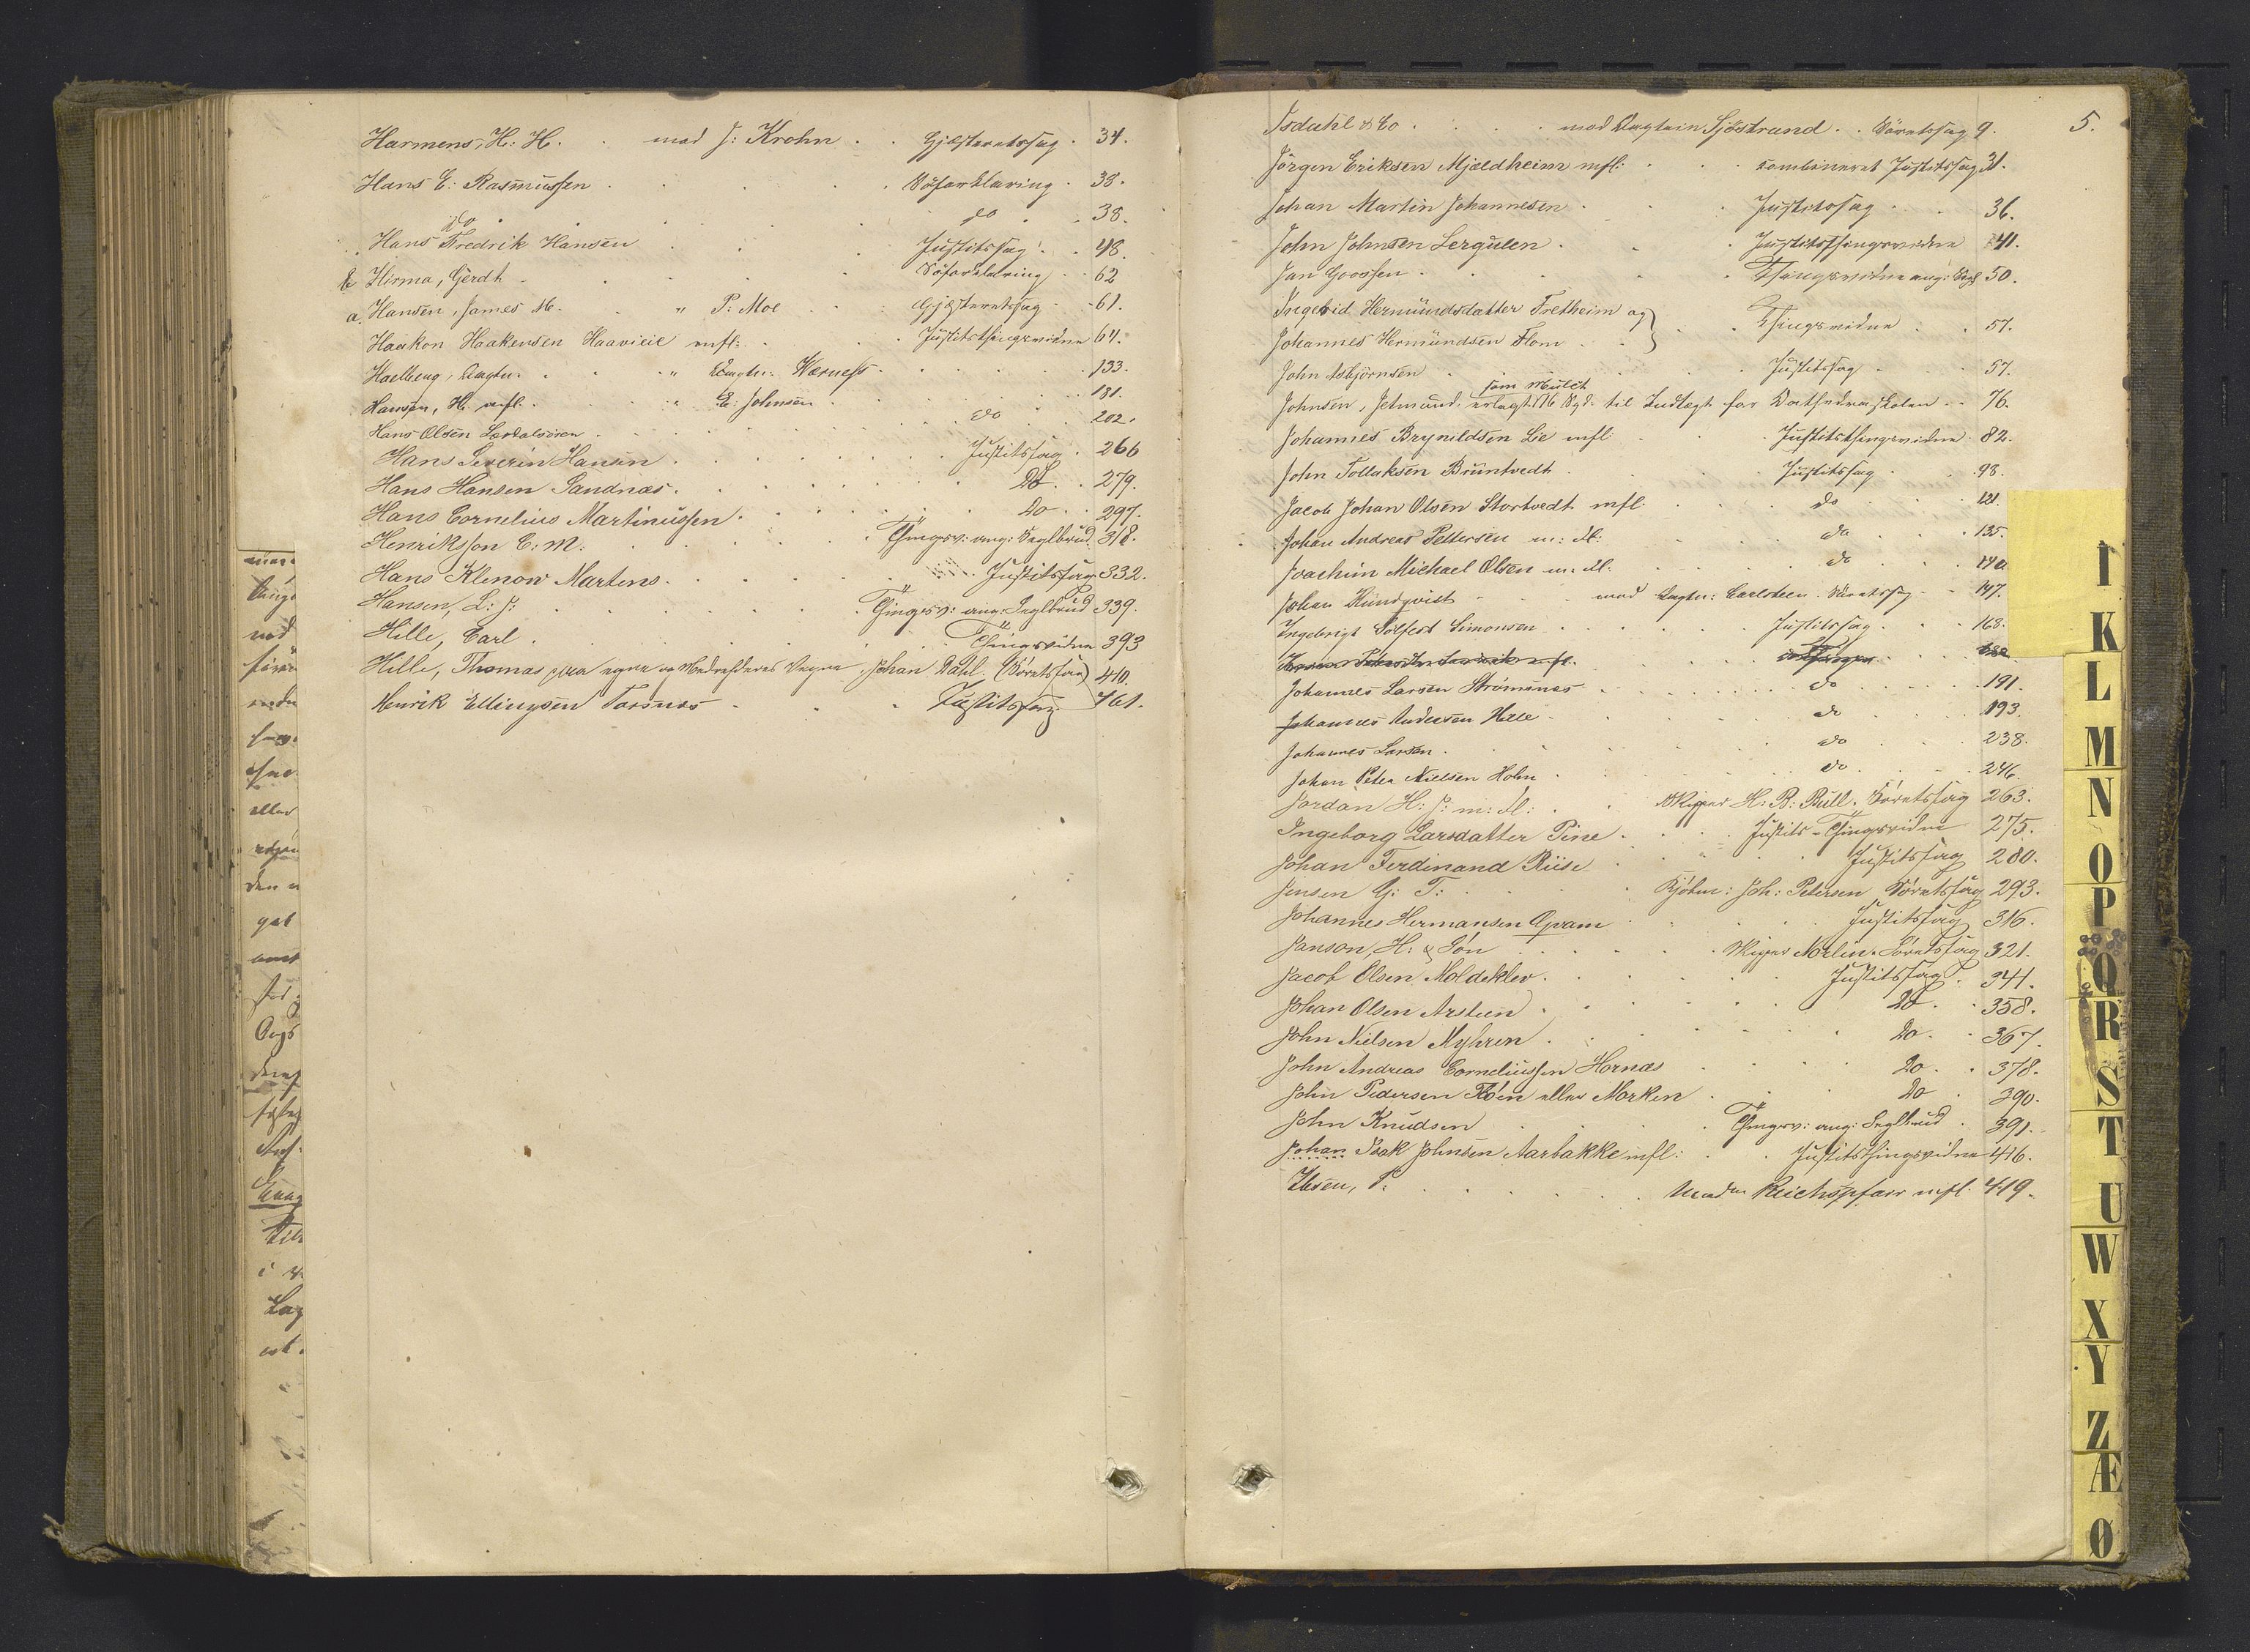 Harmens, H: H. . mod J: Krohn . . Gjæsteretssag . 34.
Hans E: Rasmussen . . . . Söforklaring . 38.
do . . . . do . . 38.
Hans Fredrik Hansen . . . Justitssag . . 48.
b Hirma, Gerdt . . . . Söforklaring . . 62
a. Hansen, James M. . " P: Moe . . Gjæsteretssag . . 61.
Haakon Haakensen Haavieie mfl: . . Justitsthingsvidne 64.
" Værness . . . 133.
Hansen, H. mfl. . . " E: Johnsen . . . 181.
Hans Olsen Lærdalsören . . . . do . . 202.
Hans Severin Hansen . . . . Justitssag . 266
Hans Hansen Sandnæs . . . . Do . . 279.
Hans Cornelius Martinussen . . . . Do . . 297.
Henriksson C: M: . . . . Thingsv: ang: Seglbrud. 318.
Hans Klenow Martens . . . . Justitssag 332.
Hansen, L: J: . . . . Thingsv: ang: Seglbrud 339.
Hille, Carl . . . . Thingsvidne 393
Hille, Thomas paa egne og Medrederes Vegne, Johan Dahl. (Söretssag) 440.
Henrik Ellingsen Torsnæs . . . Justitssag 461.
Isdahl & Co . . . . mod Capt: Sjöstrand . . Söretssag 9. 5.
Jörgen Eriksen Mjeldheim mfl: . . kombineret Justitssag 31.
Johan Martin Johannesen . . . Justitssag . . 36.
John Johnsen Lergulen . . . Justitsthingsvidne 41.
Jan Goossen . . . . Thingsvidne ang: 50.
Ingerid Hermundsdatter Fretheim og
Johannes Hermundsen Flom . . } . . Thingsvidne . . 57.
John Asbjörnsen . . . . Justitssag . . 57.
Johnsen, Jetmund: erlagt som Mulct 16 til Indtægt for Kathedralskolen . . 76.
Johannes Brynildsen Lie mfl . . Justitsthingsvidne . 82.
John Tollaksen Bruntvedt . . . Justitssag . . 98.
Jacob Johan Olsen Stortvedt mfl. . . do . . 121.
Johan Andreas Pettersen m: fl: . . do . . 135.
Joachim Michael Olsen m: fl. . . do . . 140
Johan Kundqvist . . . mod Capt: Carlsteen . Söretssag . . 147.
Ingebrigt Sölfest Simonsen . . . Justitssag . . 168.
Johannes Larsen Strömsnes . . . do . . 191.
Johannes Andersen Helle . . . do . . 193.
Johannes Larsen . . . do . . 238.
Johan Peter Nielsen Holm . . . do . . 246.
Jordan H: J: m: fl: . . Skipper H. B: Bull. Söretssag 263.
Ingeborg Larsdatter Pine . . . Justits-Thingsvidne 275.
Johan Ferdinand Riise . . . Justitssag 280.
Jensen G: T: . . . Kjöbm: Joh: Petersen Söretssag 293.
Johannes Hermansen Qvam . . . Justitssag 316.
Janson, H: & Sön . . . Skipper Norlin. Söretssag 321.
Jacob Olsen Moldeklev . . . Justitssag . 341.
Johan Olsen Arsteen . . . Do . . 358.
John Nielsen Myhren . . . Do . . 367.
John Andreas Corneliussen Hornæs . . . Do . . 378.
John Pedersen Flöen eller Morken . . . Do . 390.
John Knudsen . . . Thingsv: ang: Seglbrud . 391.
Johan Isak Johnsen Aarbakke mfl: . . Justitsthingsvidne 416.
Ibsen, P. . . . . Mad. Reichspfarr mfl. 419.
I
K
L
M
N
O
P
Q
R
S
T
U
W
X
Y
Z
Æ
Ø